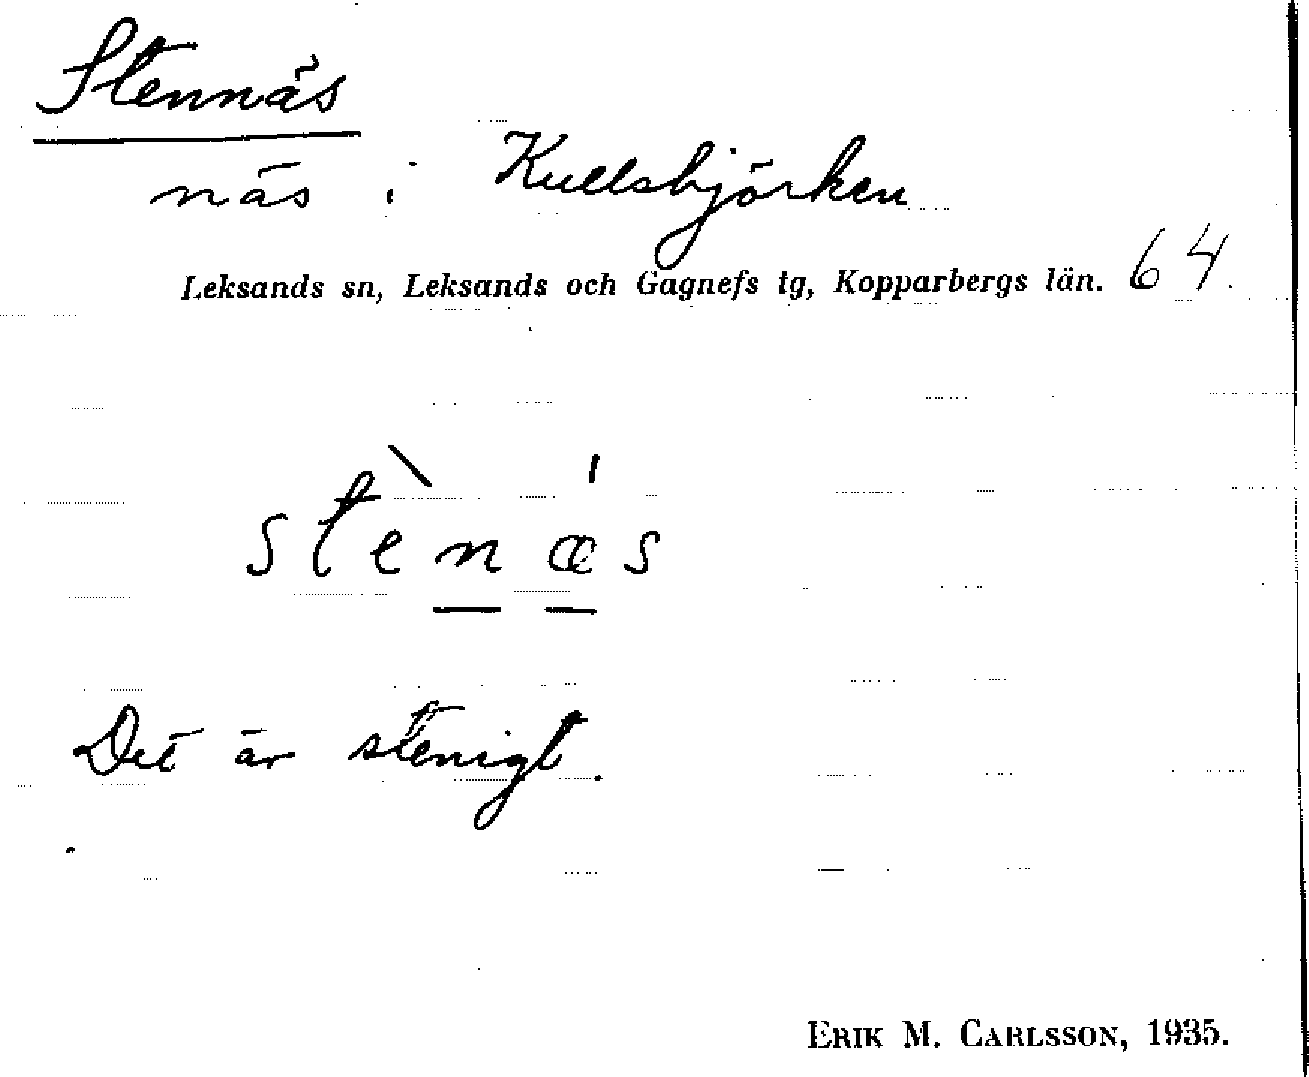 Stennäs
näs i Kullsbjörken
Leksands sn, Leksands och Gagnefs tg, Kopparbergs län. 64
stènæs
Det är stenigt.
ERIK M. CARLSSON, 1935.